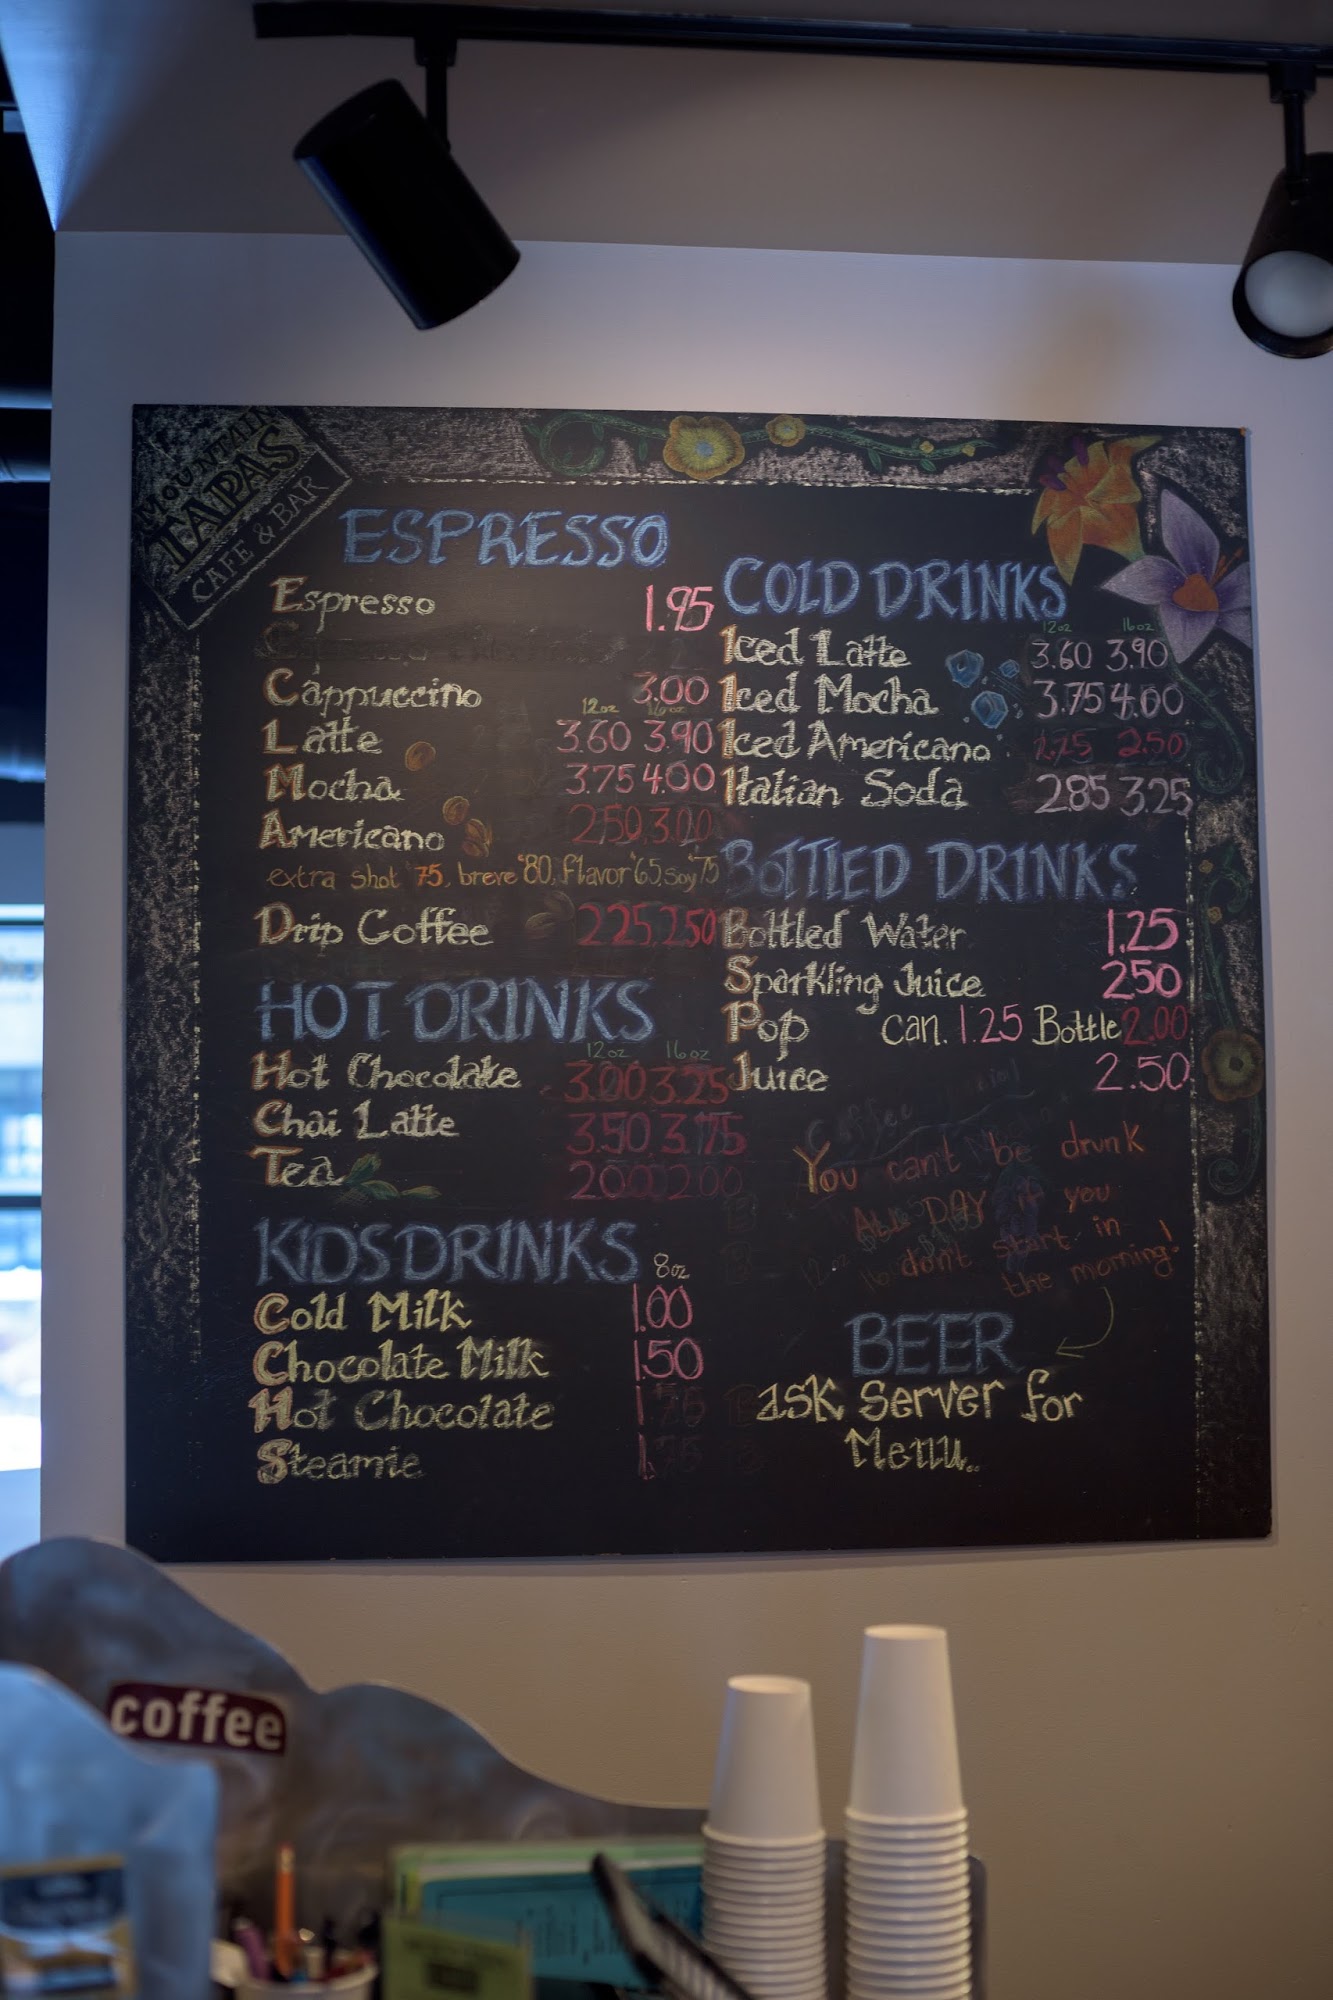 MOUNTAIN
TAPAS
CAFE & BAR
ESPRESSO
Espresso 1.95
Cappuccino 3.00
12oz 16oz
Latte 3.60 3.90
Mocha 3.75 4.00
Americano 2.50 3.00
extra shot .75, breve .80, flavor .65, soy .75
Drip Coffee 2.25 2.50
HOT DRINKS
12oz 16oz
Hot Chocolate 3.00 3.25
Chai Latte 3.50 3.75
Tea 2.00 2.00
KIDS DRINKS 8oz
Cold Milk 1.00
Chocolate Milk 1.50
Hot Chocolate 1.75
Steamie
COLD DRINKS
12oz 16oz
Iced Latte 3.60 3.90
Iced Mocha 3.75 4.00
Iced Americano 2.50
Italian Soda 2.85 3.25
BOTTLED DRINKS
Bottled Water 1.25
Sparkling Juice 2.50
Pop can. 1.25 Bottle 2.00
Juice 2.50
You can't be drunk
ALL DAY if you
don't start in
the morning!
BEER
ask server for
Menu..
coffee